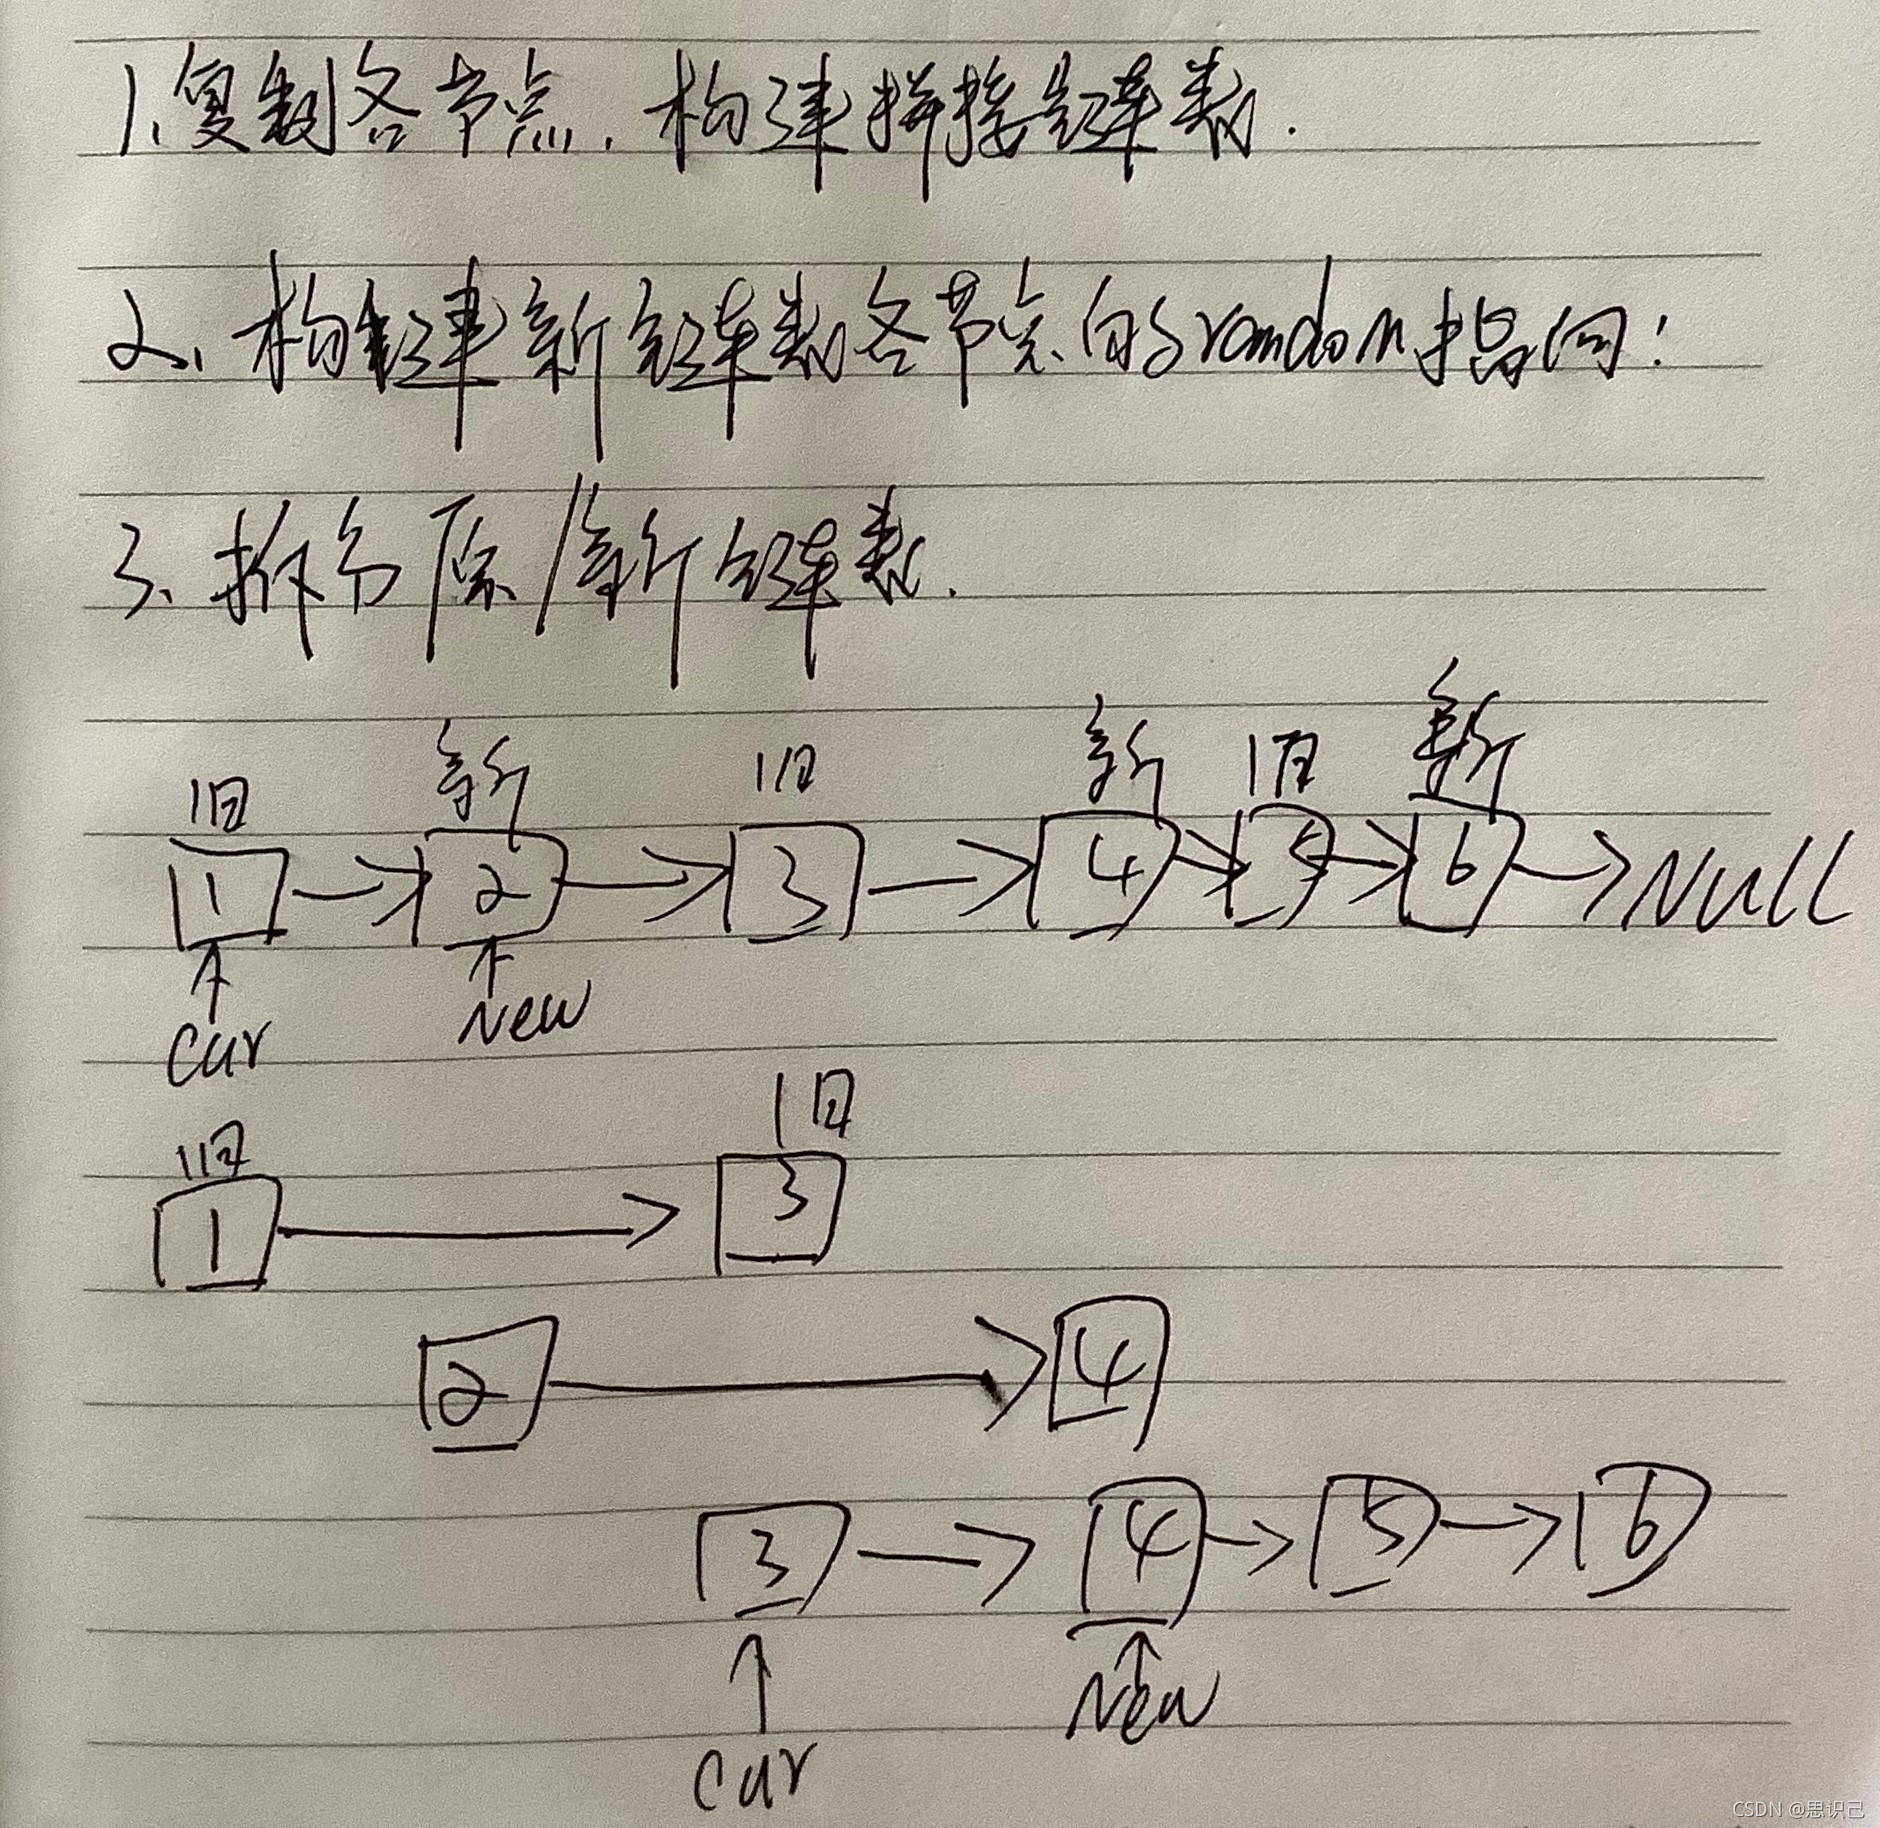 1、复制各节点,构建拼接链表.
2、构建新链表各节点的random指向:
3、拆分原/新链表.
旧 新 旧 新 旧 新
1 2 3 4 5 6 Null
cur New
旧 旧
1 3
2 4
3 4 5 6
cur New
CSDN @思识己